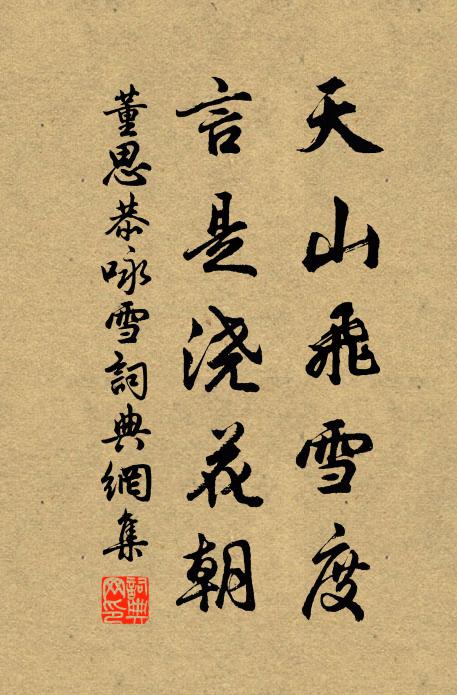 天山飛雪度
言是浇花朝
董思恭咏雪詞典網集
詞典网印